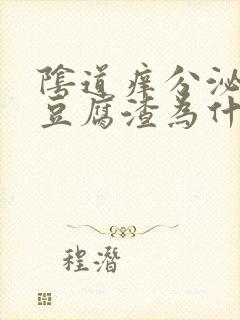 陰道痒分泌
豆腐渣為什
程潛